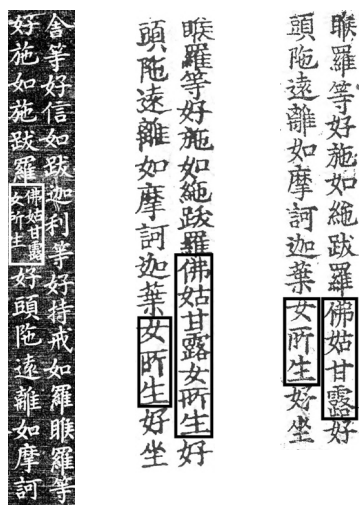 睺羅等好施如絁跋羅佛姑甘露好
頭陁遠離如摩訶迦葉女所生好坐
睺羅等好施如絁跋羅佛姑甘露女所生好
頭陁遠離如摩訶迦葉女所生好坐
舍等好信如跋迦利等好持戒如羅睺羅等
好施如施跋羅佛姑甘露女所生好頭陁遠離如摩訶